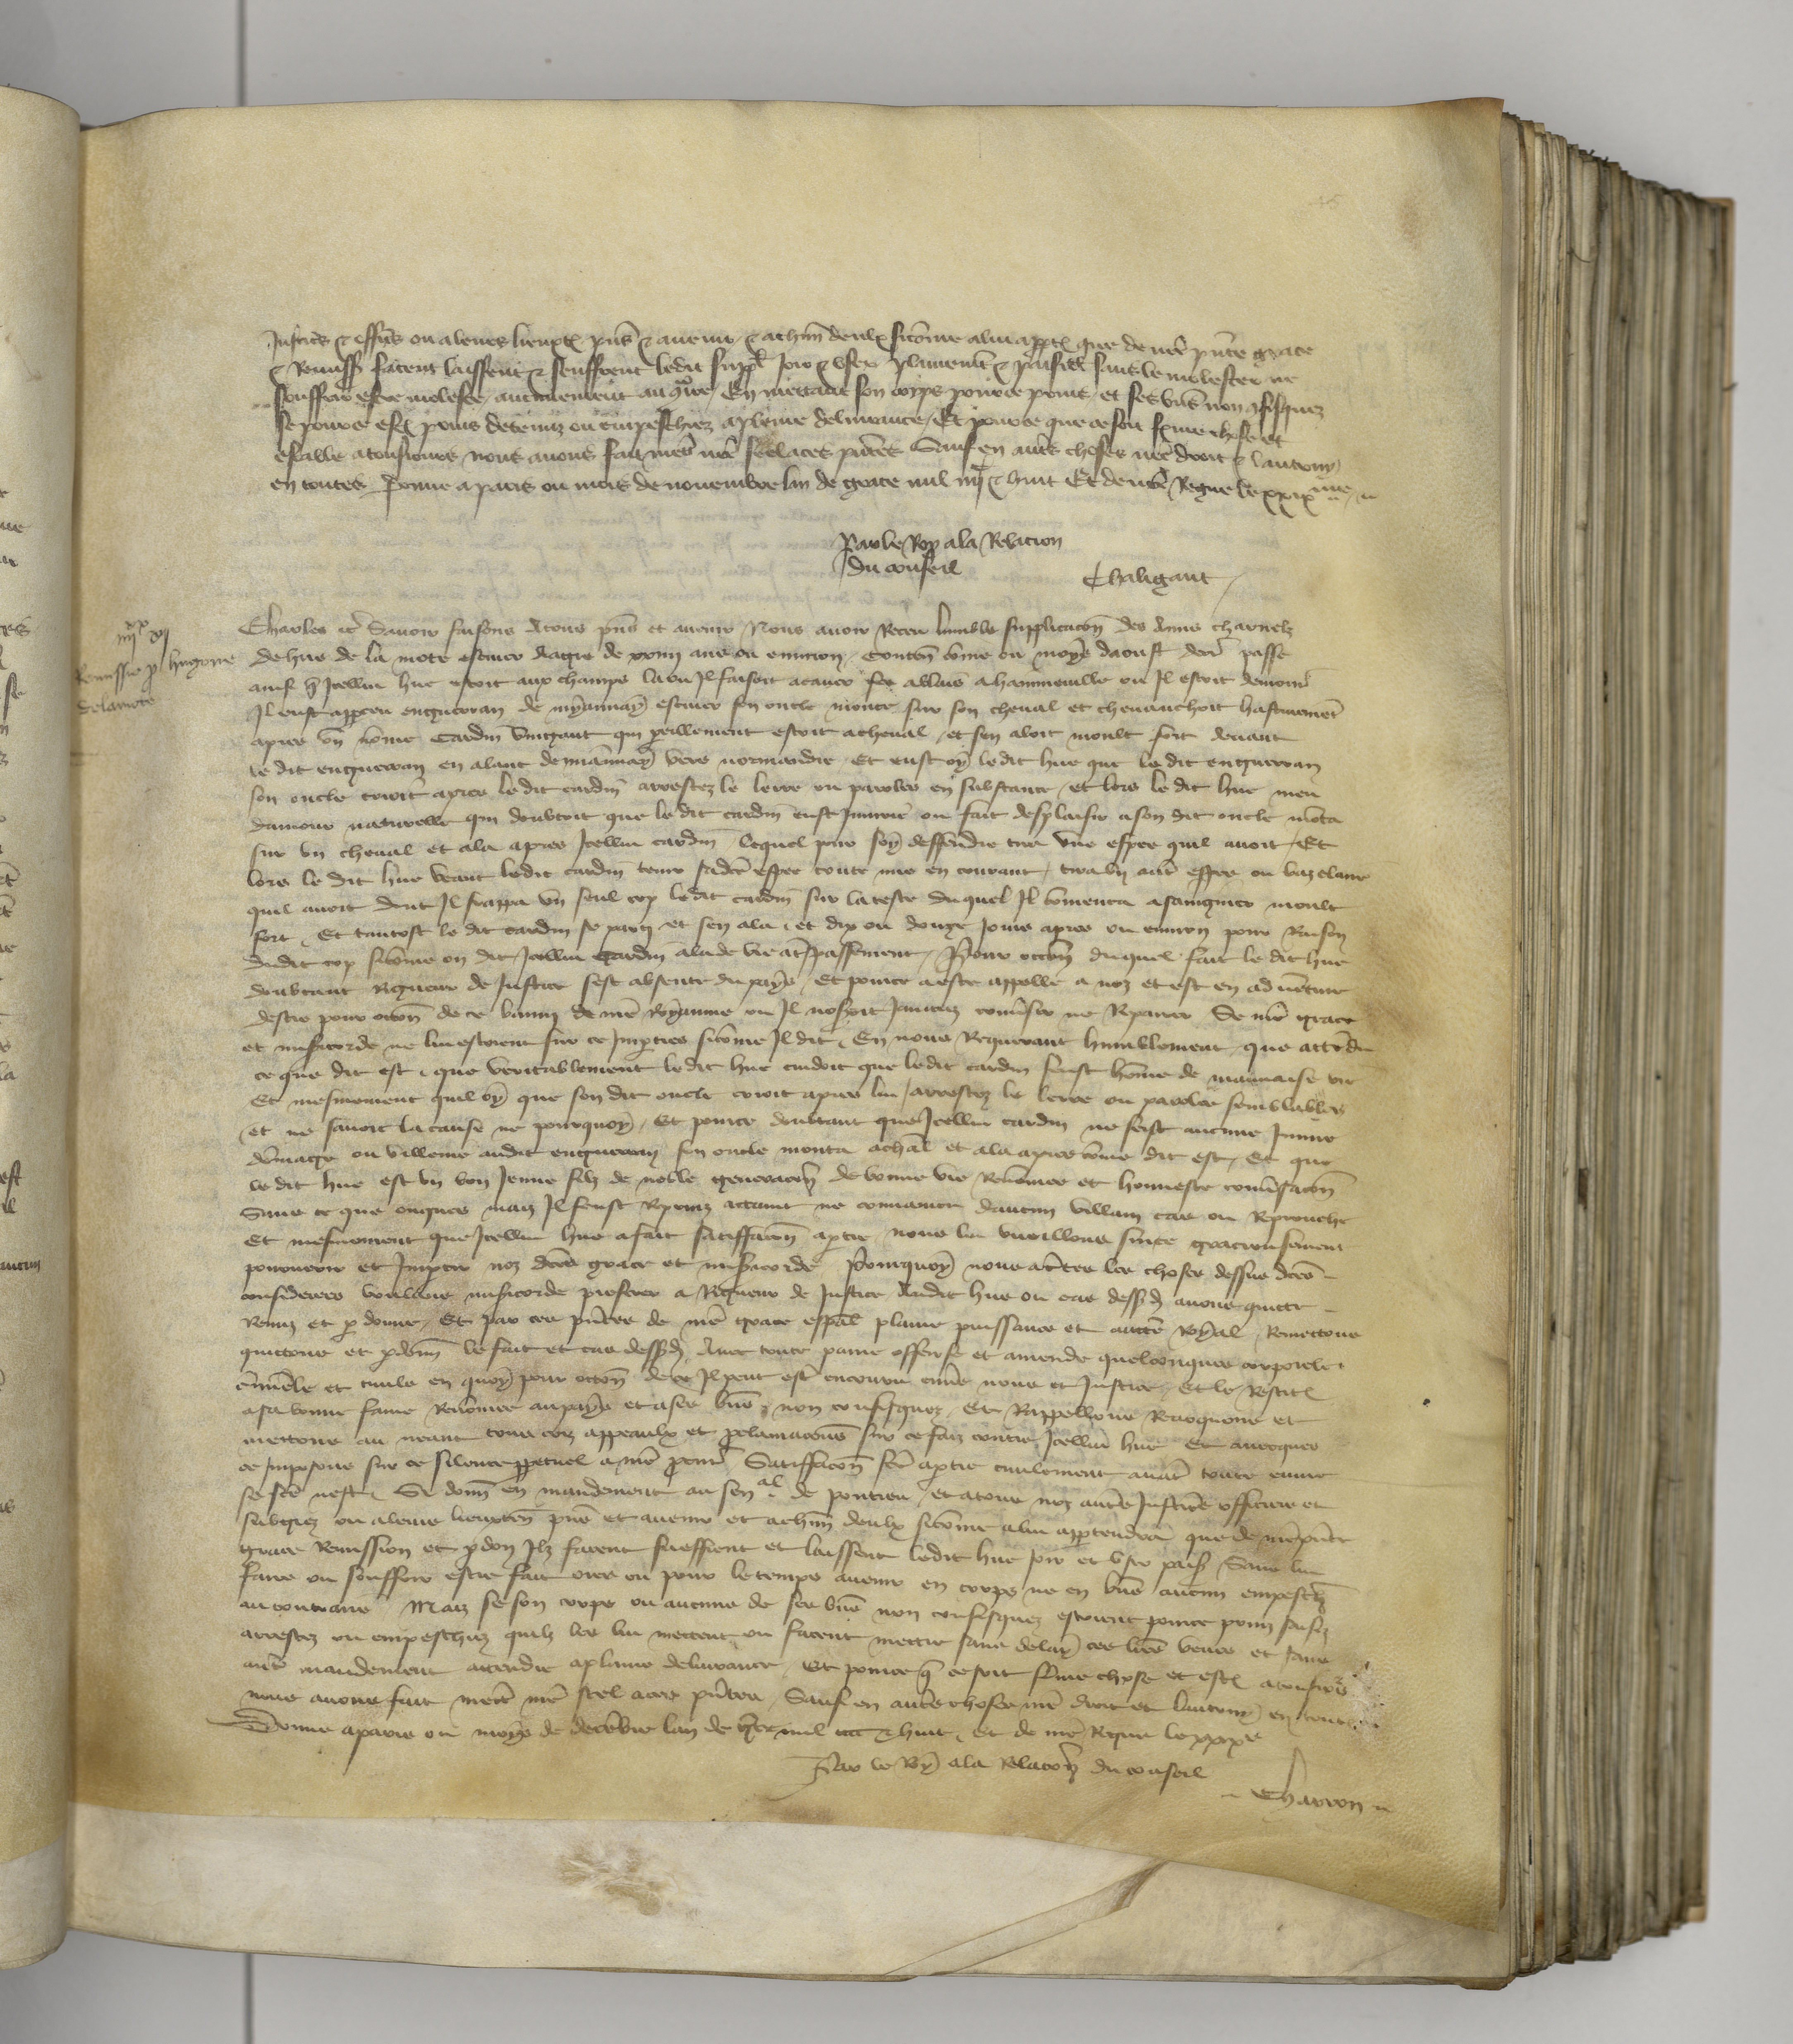 Justic̃s & offic̃s ou a leurs lieuxten̄ pñs & avenir & a chm̄ deulx sicōme a lui apptẽ que de nr̃e pñte grace
& Remissiõ facent laissent & seuffrent ledit supplĩ Joir & user plainemẽt & paisiblẽ sans le molester ne
souffrir estre moleste aucunement au qt̃raire En mettant son corps pour ce prins et ses biẽs non 9fisquez
se pour ce estoiẽt prins detenuz ou empeschiez a plaine delivrance Et pour ce que ce soit ferme chose et
estable a tousiours nous avons fait mett̃e nr̃e scel a ces pñtes Sauf en autr̃s choses nr̃e droit & lautruy
en toutes Donne a paris ou mois de novembre lan de grace mil iiijc & huit Et de nr̃e Regne le xxixme
Par le Roy a la Relacion
du conseil
Chaligaut
iiijxx xj
Remissio p̱ hugone
delamote
Charles &c̃ Savoir faisons A tous pñs et avenir Nous avoir Receu lumble supplicacõn des Amis charnelz
de hue de la mote escuier aagie de xviij ans ou environ Conteñ cõme ou moys daoust derr̃ passe
ainsi q̃ Icellui hue estoit aux champs la ou Il faisoit ses ablais a hammeville ou Il estoit demour̃
Il eust apperceu enguerran de myannay escuier son oncle monte sur son cheval et chevauchoit hastivemẽt
apres un nōme Cardin qui pareillement estoit a cheval et sen aloit moult fort devant
le dit enguerran en alant de miannay vers normandie Et eust oy ledit hue que le dit enguerran
son oncle crioit apres ledit cardin arrestez le lerre ou paroles en substance Et lors le dit hue meu
damour naturelle qui doubtoit que le dit cardin eust Injurie ou fait desplaisir a son dit oncle mōta
sur un cheval et ala apres Icellui cardin lequel pour soy deffendre tira une espee quil avoit Et
lors le dit hue veant ledit cardin tenir sadc̃e espee toute nue en courant tira un aut̃ espee ou bazelaire
quil avoit dont Il frappa un seul cop ledit cardin sur la teste duquel Il cōmenca a saingnier moult
fort Et tantost le dit cardin se party et sen ala et dix ou douze Jours apres ou environ pour Raison
dudit cop sicōme on dit Icellui Cardin ala de vie a t̃passement Pour occõn duquel fait le dit hue
doubtant Rigueur de Justice sest absente du pays Et pour ce a este appelle a noz et est en adventure
destre pour occõn de ce banny de nr̃e Royaume ou Il noseroit Jamaiz convs̃er ne Reparer Se nr̃e grace
et misericorde ne lui estoient sur ce Imparties sicōme Il dit En nous Requerant humblement que attẽdu
ce que dit est que veritablement ledit hue cuidoit que ledit cardin feust hōme de mauvaise vie
Et mesmement quil oy que son dit oncle crioit apres lui arrestez le lerre ou paroles semblables
et ne savoit la cause ne pourquoy Et pour ce doubtant que Icellui cardin ne feist aucune Injure
dōmage ou villenie audit enguerran son oncle monta a chãl et ala apres cōme dit est Et que
le dit hue est un bon Jeune filz de noble generacõn de bonne vie Renōmee et honneste convs̃acõn
Sans ce que onques maiz Il feust Reprins attaint ne convaincu daucun villain cas ou Reprouche
Et mesmement que Icellui hue a fait satisfacõn a p̱tie nous lui vueillons sur ce gracieusement
pourveoir et Impartir noz dc̃es grace et misericorde Pourquoy nous attẽdues les choses dessus dc̃es
considerees voulans misericorde preferer a Rigueur de Justice Audit hue ou cas dessusd̃ avons quitte
Remiz et p̱donne Et par ces pñtes de nr̃e grace esp̃al plaine puissance et auctẽ Royal Remettons
quittons et p̱donn̄ le fait et cas dessusd̃ Avec toute paine offense et amende quelconques corporele
cr̃iminele et civile en quoy pour occõn de ce Il peut estr̃ encouru env̄s nous et Justice Et le Restit̃
a sa bonne fame Renōmee au pays et a ses biẽs non confisquez Et Rappellons Revoquons et
mettons au neant tous cez appeaulx et p̱clamacõns sur ce faiz contre Icellui hue Et avecques
ce Imposons sur ce silence p̱petuel a nr̃e pcur̃ Satisfacõn fc̃e a p̱tie civilement avãt toute euvre
se fc̃e nest Si donn̄ en mandement au senal de pontieu et a tous noz autr̃es Justiciẽs officiers et
subgiez ou a leurs lieuxten̄ pñs et avenir et a chm̄ deulx sicōme a lui app̱tendra que de nr̃e pñte
grace Remission et p̱don Ilz facent sueffrent et laissent ledit hue Joir et User paisiblẽ Sans lui
faire ou souffrir estre fait ores ou pour le temps avenir en corps ne en biẽs aucun empeschẽ
au contraire Maiz se son corps ou aucuns de ses biẽs non confisquez estoient pour ce prins saisiz
arrestez ou empeschiez quilz les lui mettent ou facent mettre sans delay ces lr̃es veues et sans
autr̃e mandement attendre a plaine delivrance Et pour ce q̃ ce soit ferme chose et establẽ a tousiours
nous avons fait mett̃e nr̃e scel a ces pñtes Sauf en autr̃es choses nr̃e droit et lautruy en toutes
Donne a paris ou moys de decembre lan de grace mil cccc & huit Et de nr̃e Regne le xxixe
Par le Roy a la Relacõn du conseil
Charron